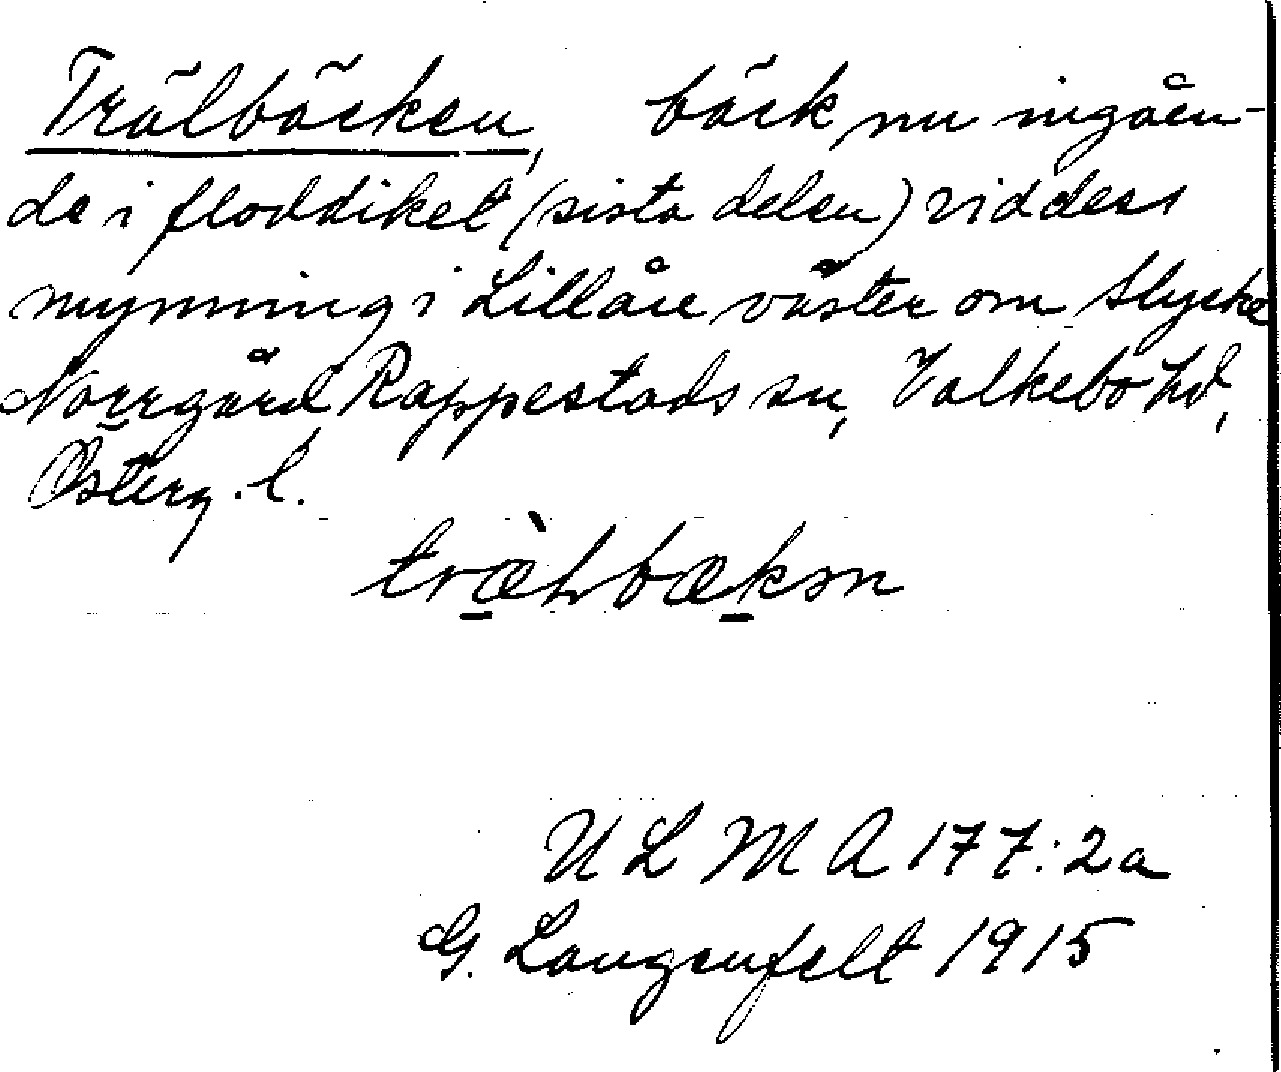 Trälbäcken, bäck, nu ingåen-
de i floddiket (sista delen) vid dess
mynning i Lillån väster om Slycke
Norrgård Rappestads sn, Valkebo hd,
Österg. l.
træ̀lbækən
ULMA 177:2a
G. Langenfelt 1915